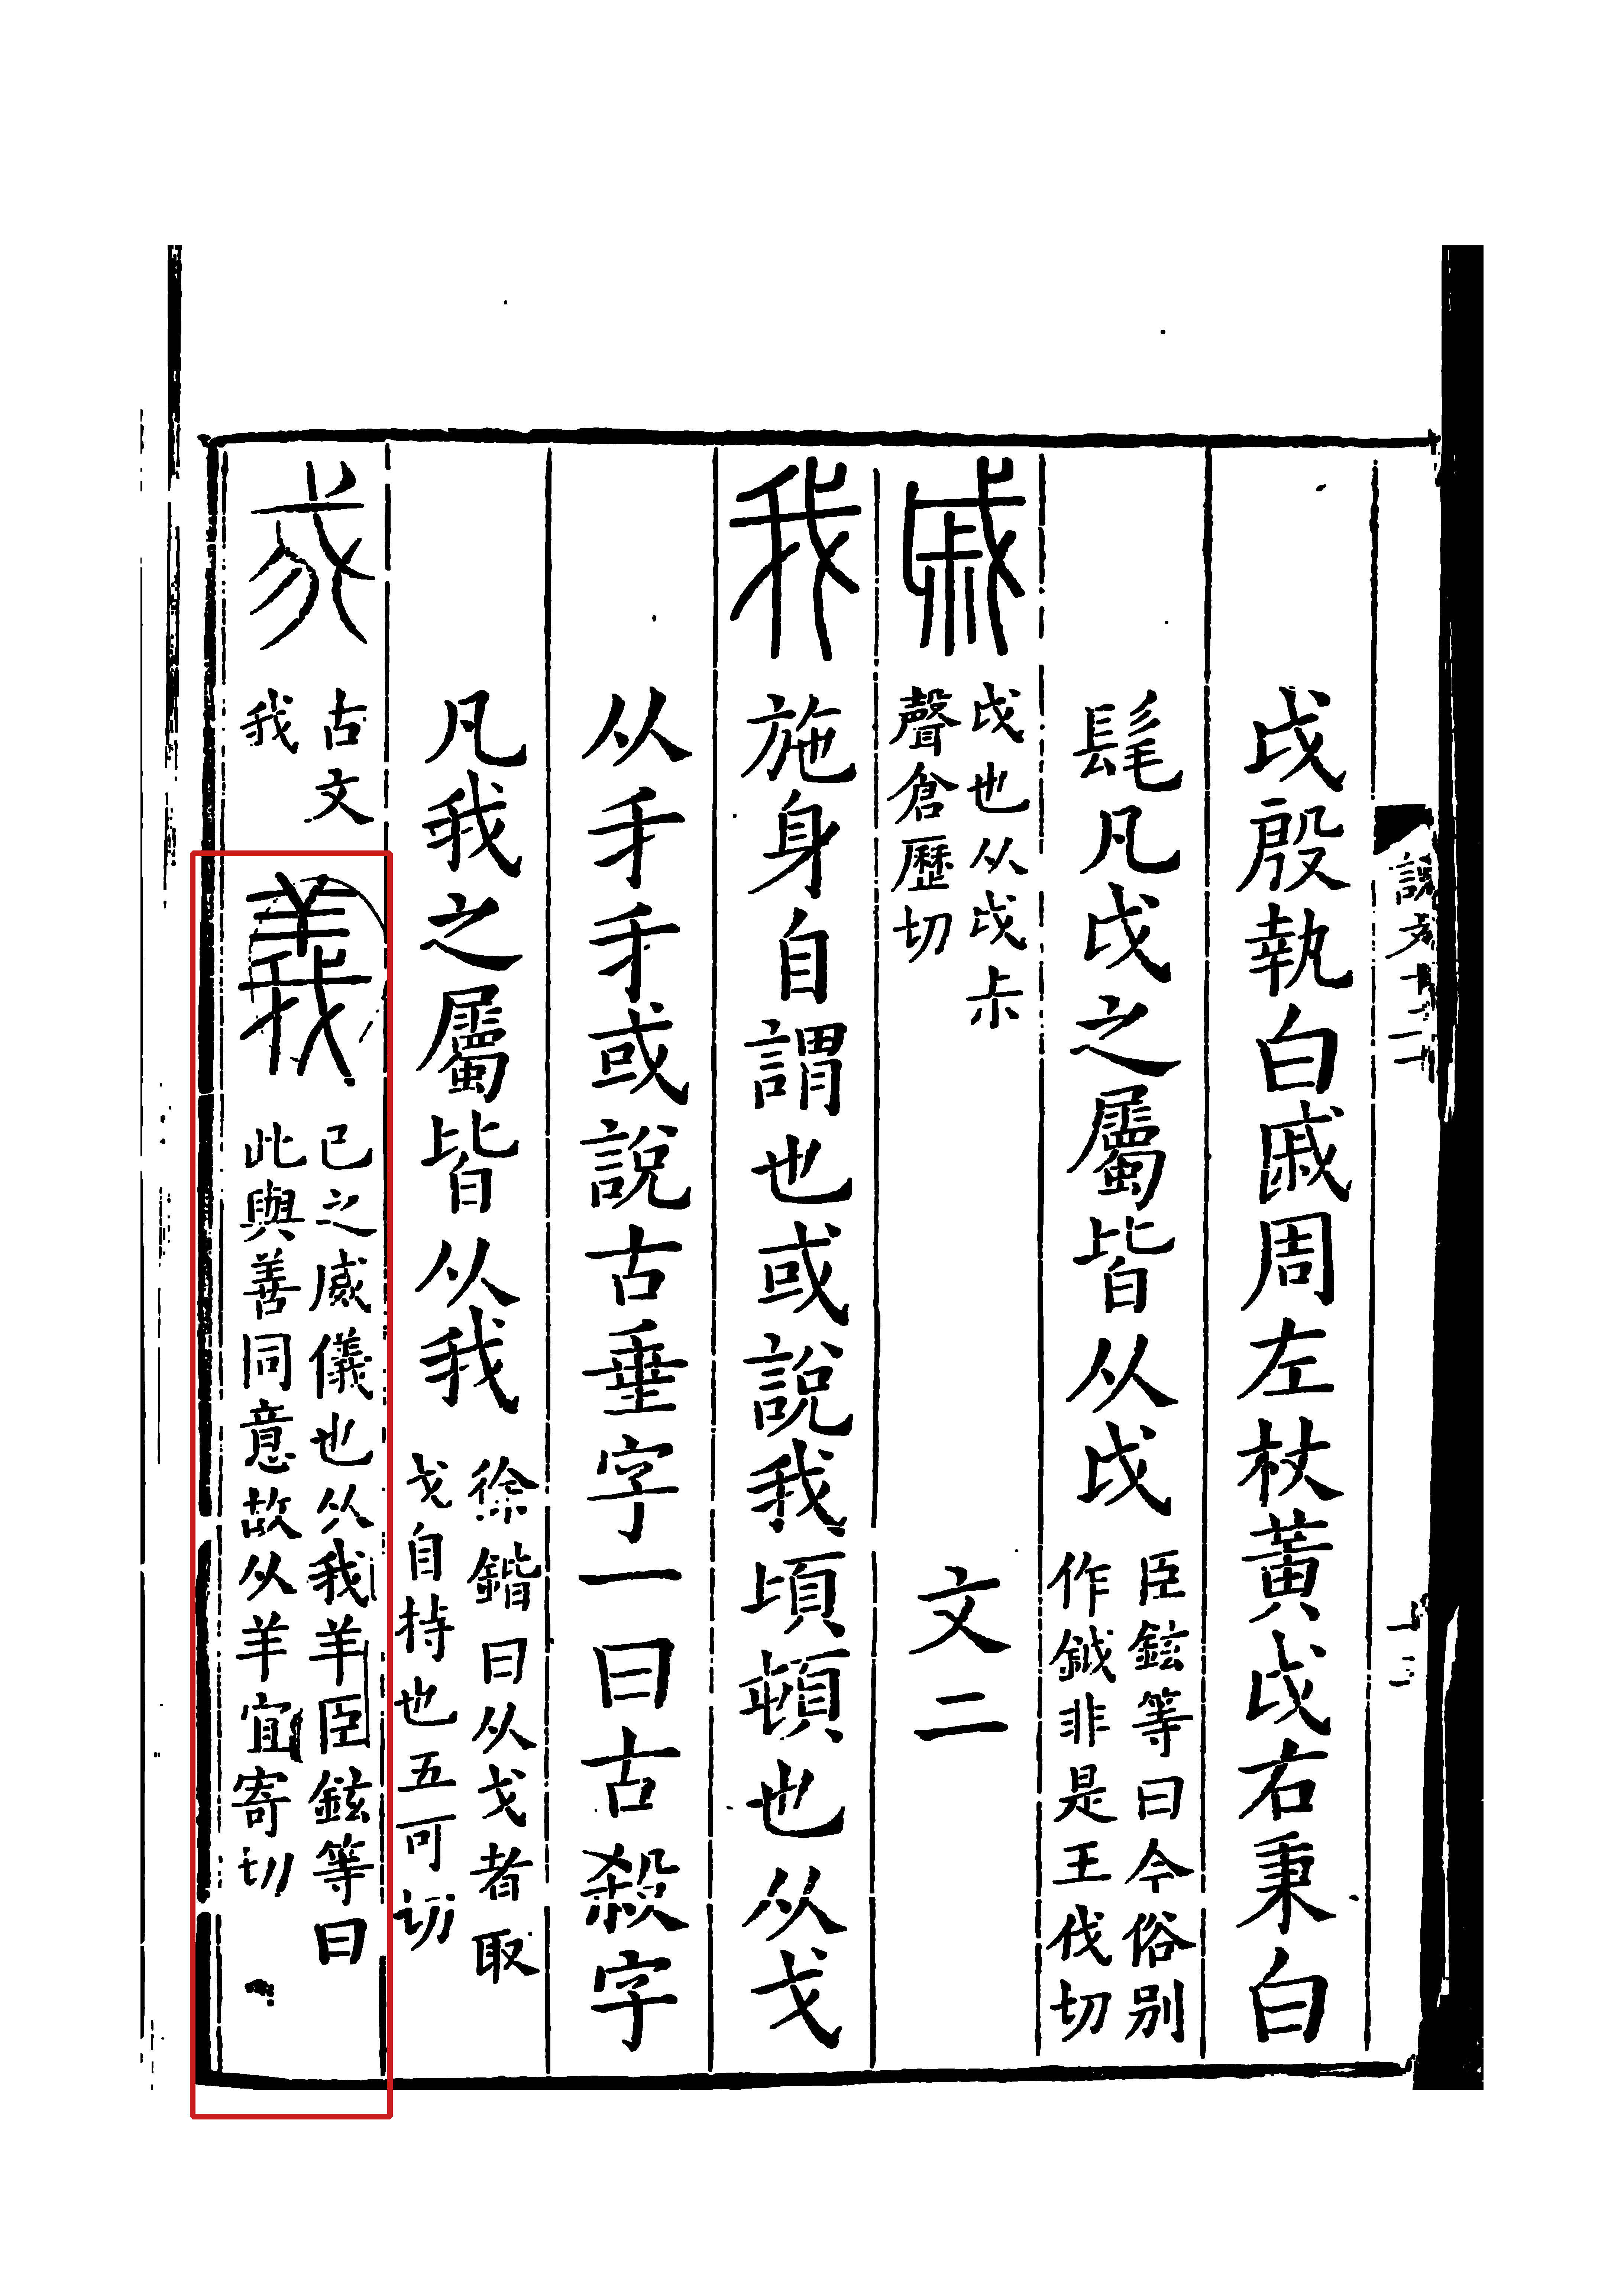 說文十二下
十二
戉殷執白戚周左杖黃戉右秉白
髦凡戉之屬皆从戉
臣鉉等曰今俗别
作鉞非是王伐切
戚
戉也从戉尗
聲倉歷切
文二
我施身自謂也或說我頃頓也从戈
从𠄒𠄒或說古垂字一曰古殺字
凡我之屬皆从我
徐鍇曰从戈者取
戈自持也五可切
𢦠
古文
我
義
己之威儀也从我羊臣鉉等曰
此與善同意故从羊宜寄切